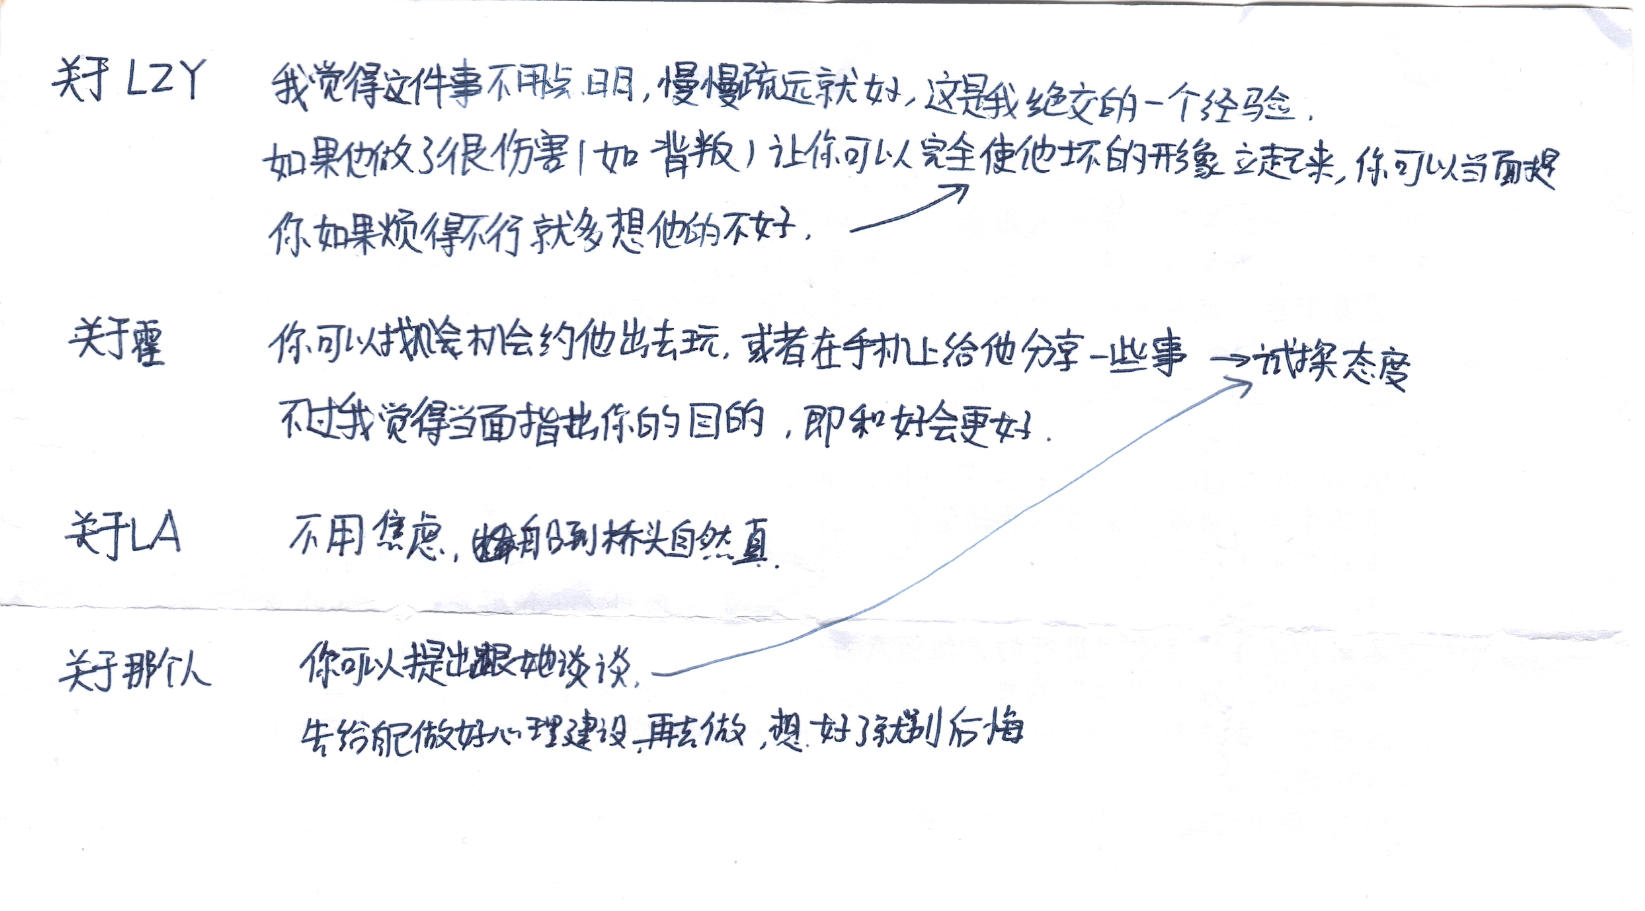 关于LZY 我觉得这件事不用点明,慢慢疏远就好,这是我绝交的一个经验.
如果他做了很伤害(如背叛)让你可以完全使他坏的形象立起来,你可以当面提
你如果烦得不行就多想他的不好. →
关于霍 你可以找机会约他出去玩,或者在手机上给他分享一些事 →试探态度
不过我觉得当面指出你的目的,即和好会更好.
关于LA 不用焦虑,船到桥头自然直.
关于那个人 你可以提出跟她谈谈.
先给自己做好心理建设再去做,想好了就别后悔